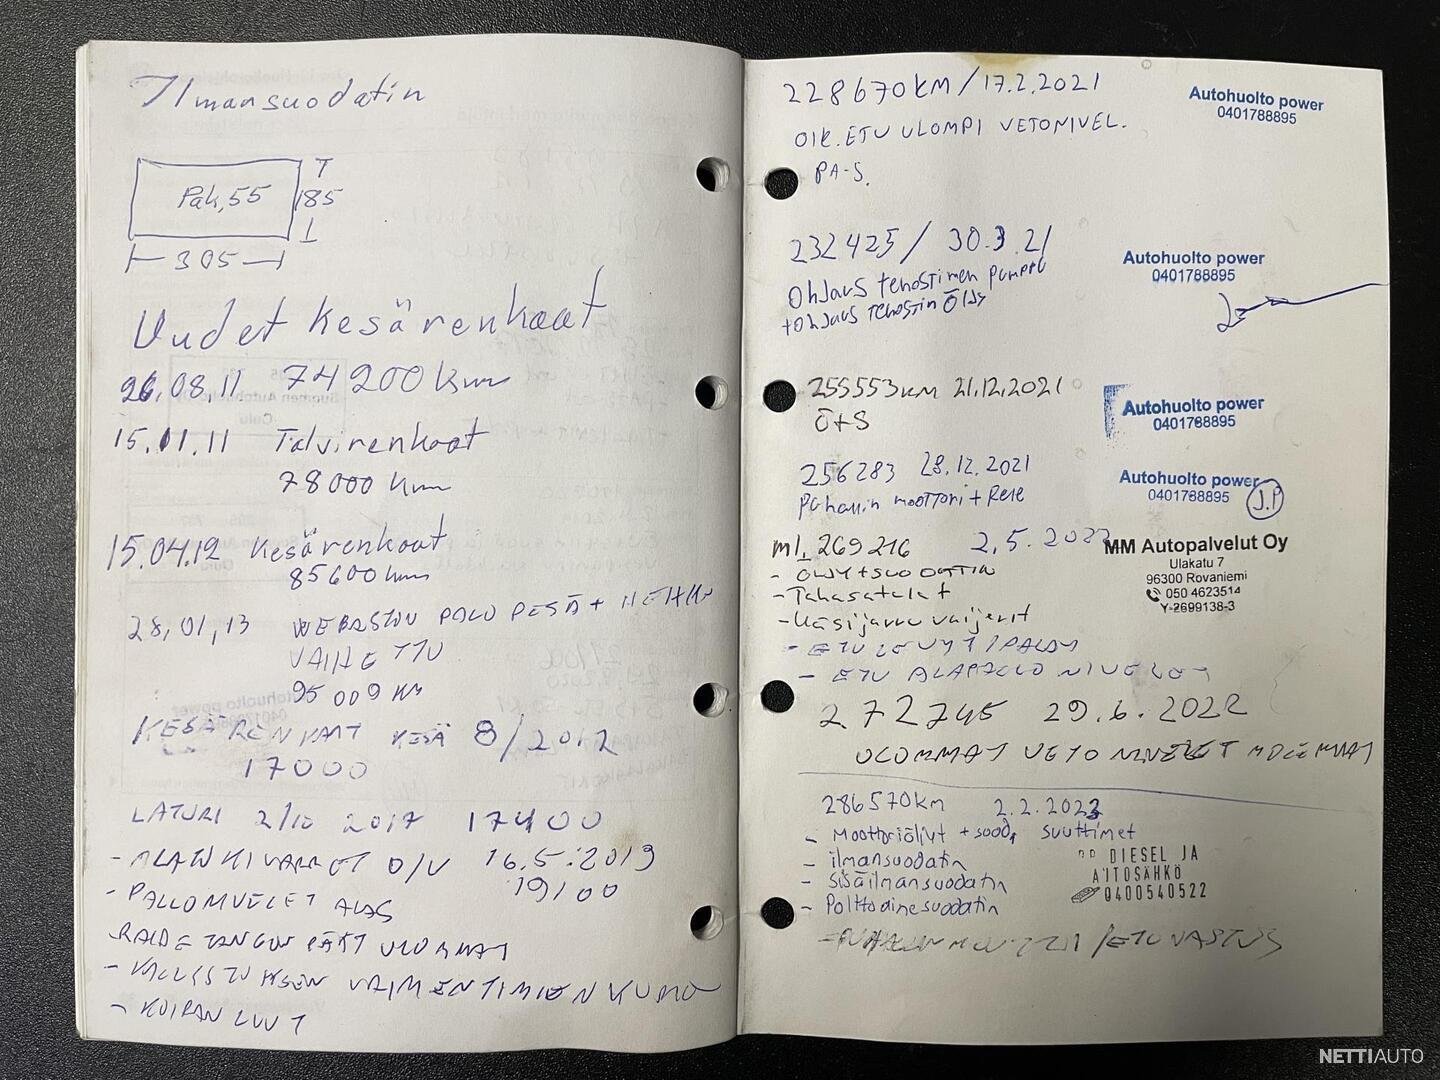 Ilmansuodatin
Pak, 55
185
305
Uudet kesärenkaat
26.08.11 74200 km
15.11.11 Talvirenkaat
78000 km
15.04.12 kesärenkaat
85600 km
28,01,13 WEBASTON PALO PESÄ +
VAIHETTU
95009 KM
KESÄRENKAAT KESÄ 8/2012
17000
LATURI 2/10 2017 174100
O/V 16.5.2019
- PALLONIVELET ALAS 19100
RAIDETANGON PÄÄT ULOMMAT
- KALLISTUKSEN VAIMENTIMIEN KUMO
- KOIRAN LUUT
228670KM/17.2.2021
OIK.ETU ULOMPI VETONIVEL.
PA-S.
Autohuolto power
0401788895
232425/ 30.3.21
Ohjaus tehostimen pumppu
+ohjaus tehostin Öljy
Autohuolto power
0401788895
255553KM 21.12.2021
Ö+S
Autohuolto power
0401788895
256283 28.12.2021
Puhallin moottori + Rele
Autohuolto power
0401788895
J.P
ml. 269216 2.5.2022
- ÖLJY + SUODATTIN
- Takasatulat
- Käsijarru vaijerit
- ETU LEVYT/PALAT
- ETU ALAPALLO NIVELET
MM Autopalvelut Oy
Ulakatu 7
96300 Rovaniemi
050 4623514
Y-2699138-3
272745 29.6.2022
ULOMMAT VETO NIVELET MOLEMMAT
286570km 2.2.2023
- Moottoriöljyt + suod, suuttimet
- ilmansuodatin
- Sisäilmansuodatin
- Polttoainesuodatin
DIESEL JA
AUTOSÄHKÖ
0400540522
/ETUVASTUS
NETTIAUTO